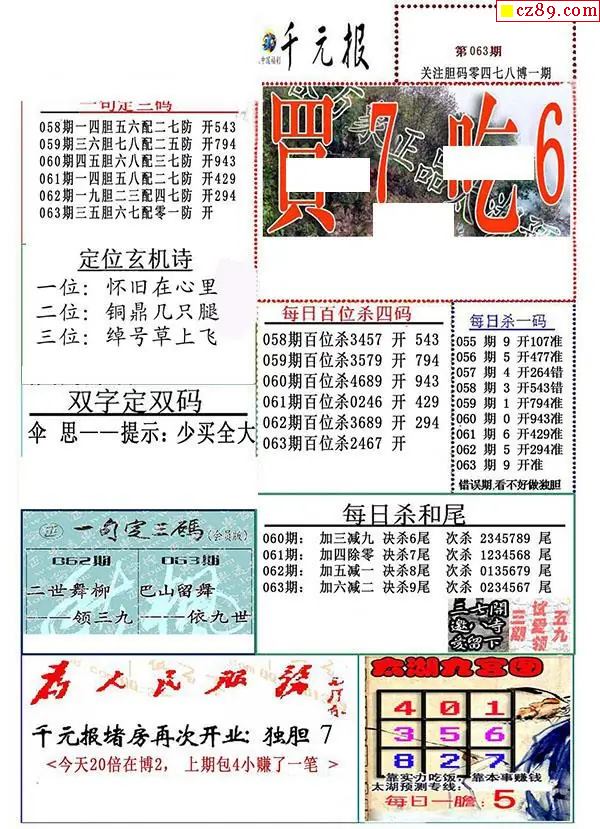 cz89.com
千元报
第063期
关注胆码零四七八博一期
買7吃6
一句定三码
058期一四胆五六配二七防 开543
059期三六胆七八配二五防 开794
060期四五胆六八配三七防 开943
061期一四胆五八配二七防 开429
062期一九胆二三配四七防 开294
063期三五胆六七配零一防 开
定位玄机诗
一位：怀旧在心里
二位：铜鼎几只腿
三位：绰号草上飞
每日百位杀四码
058期百位杀3457 开 543
059期百位杀3579 开 794
060期百位杀4689 开 943
061期百位杀0246 开 429
062期百位杀3689 开 294
063期百位杀2467 开
每日杀一码
055 期 9 开107准
056 期 5 开477准
057 期 4 开264错
058 期 3 开543错
059 期 1 开794准
060 期 0 开943准
061 期 6 开429准
062 期 5 开294准
063 期 9 开准
错误期,看不好做独胆
双字定双码
伞 思——提示：少买全大
每日杀和尾
060期： 加三减九 决杀6尾 次杀 2345789 尾
061期： 加四除零 决杀7尾 次杀 1234568 尾
062期： 加五减一 决杀8尾 次杀 0135679 尾
063期： 加六减二 决杀9尾 次杀 0234567 尾
一句定三碼(会员版)
062期
063期
二世舞柳
——领三九
巴山留舞
——依九世
为人民服务
千元报堵房再次开业：独胆 7
<今天20倍在博2， 上期包4小赚了一笔 >
太湖九宫图
4 0 1
3 5 6
8 2 7
靠实力吃饭，靠本事赚钱
太湖预测专线：
每日一膽：5